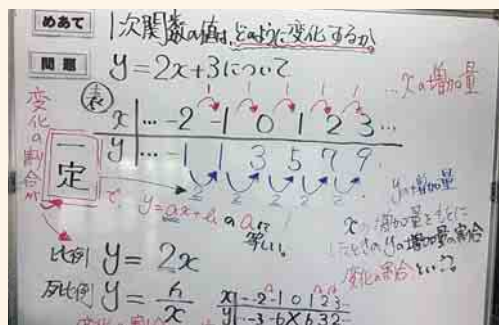 めあて 1次関数の値は、どのように変化するか。
問題 y=2x+3について
表
1 1 1 1 1 …xの増加量
x … -2 -1 0 1 2 3 …
y … -1 1 3 5 7 9 …
2 2 2 2 2 yの増加量
変化の割合が
一定
で、y=ax+bのaに等しい。
xの増加量をもとに
したときのyの増加量の割合
変化の割合という。
比例 y=2x
反比例 y=
x
x … -2 -1 0 1 2 3
y … -3 -6 × 6 3 2